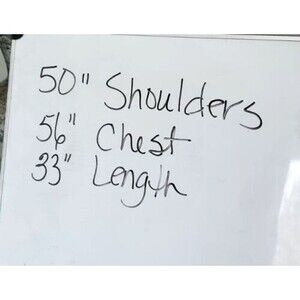 50" Shoulders
56" Chest
33" Length